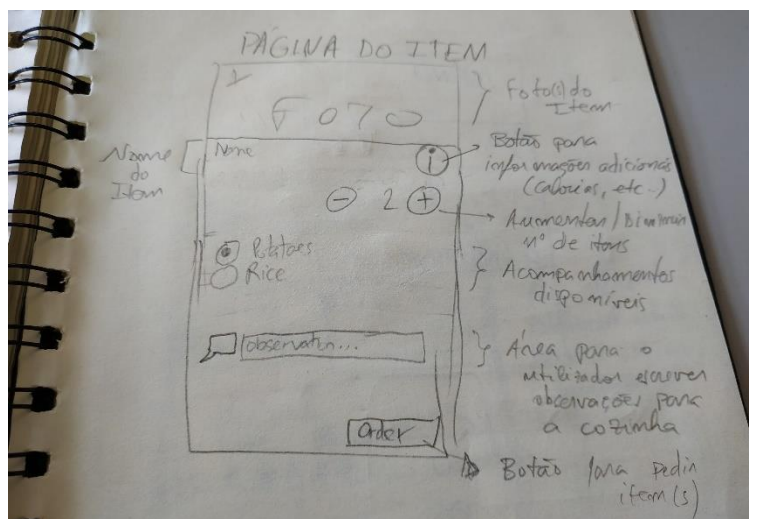 PÁGINA DO ITEM
FOTO
Foto(s) do
Item
Nome
do
Item
Name
i
Botão para
informações adicionais
(calorias, etc..)
- 2 +
Aumentar/Diminuir
nº de itens
Potatoes
Rice
Acompanhamentos
disponíveis
observation...
Área para o
utilizador escrever
observações para
a cozinha
Order
Botão para pedir
item(s)